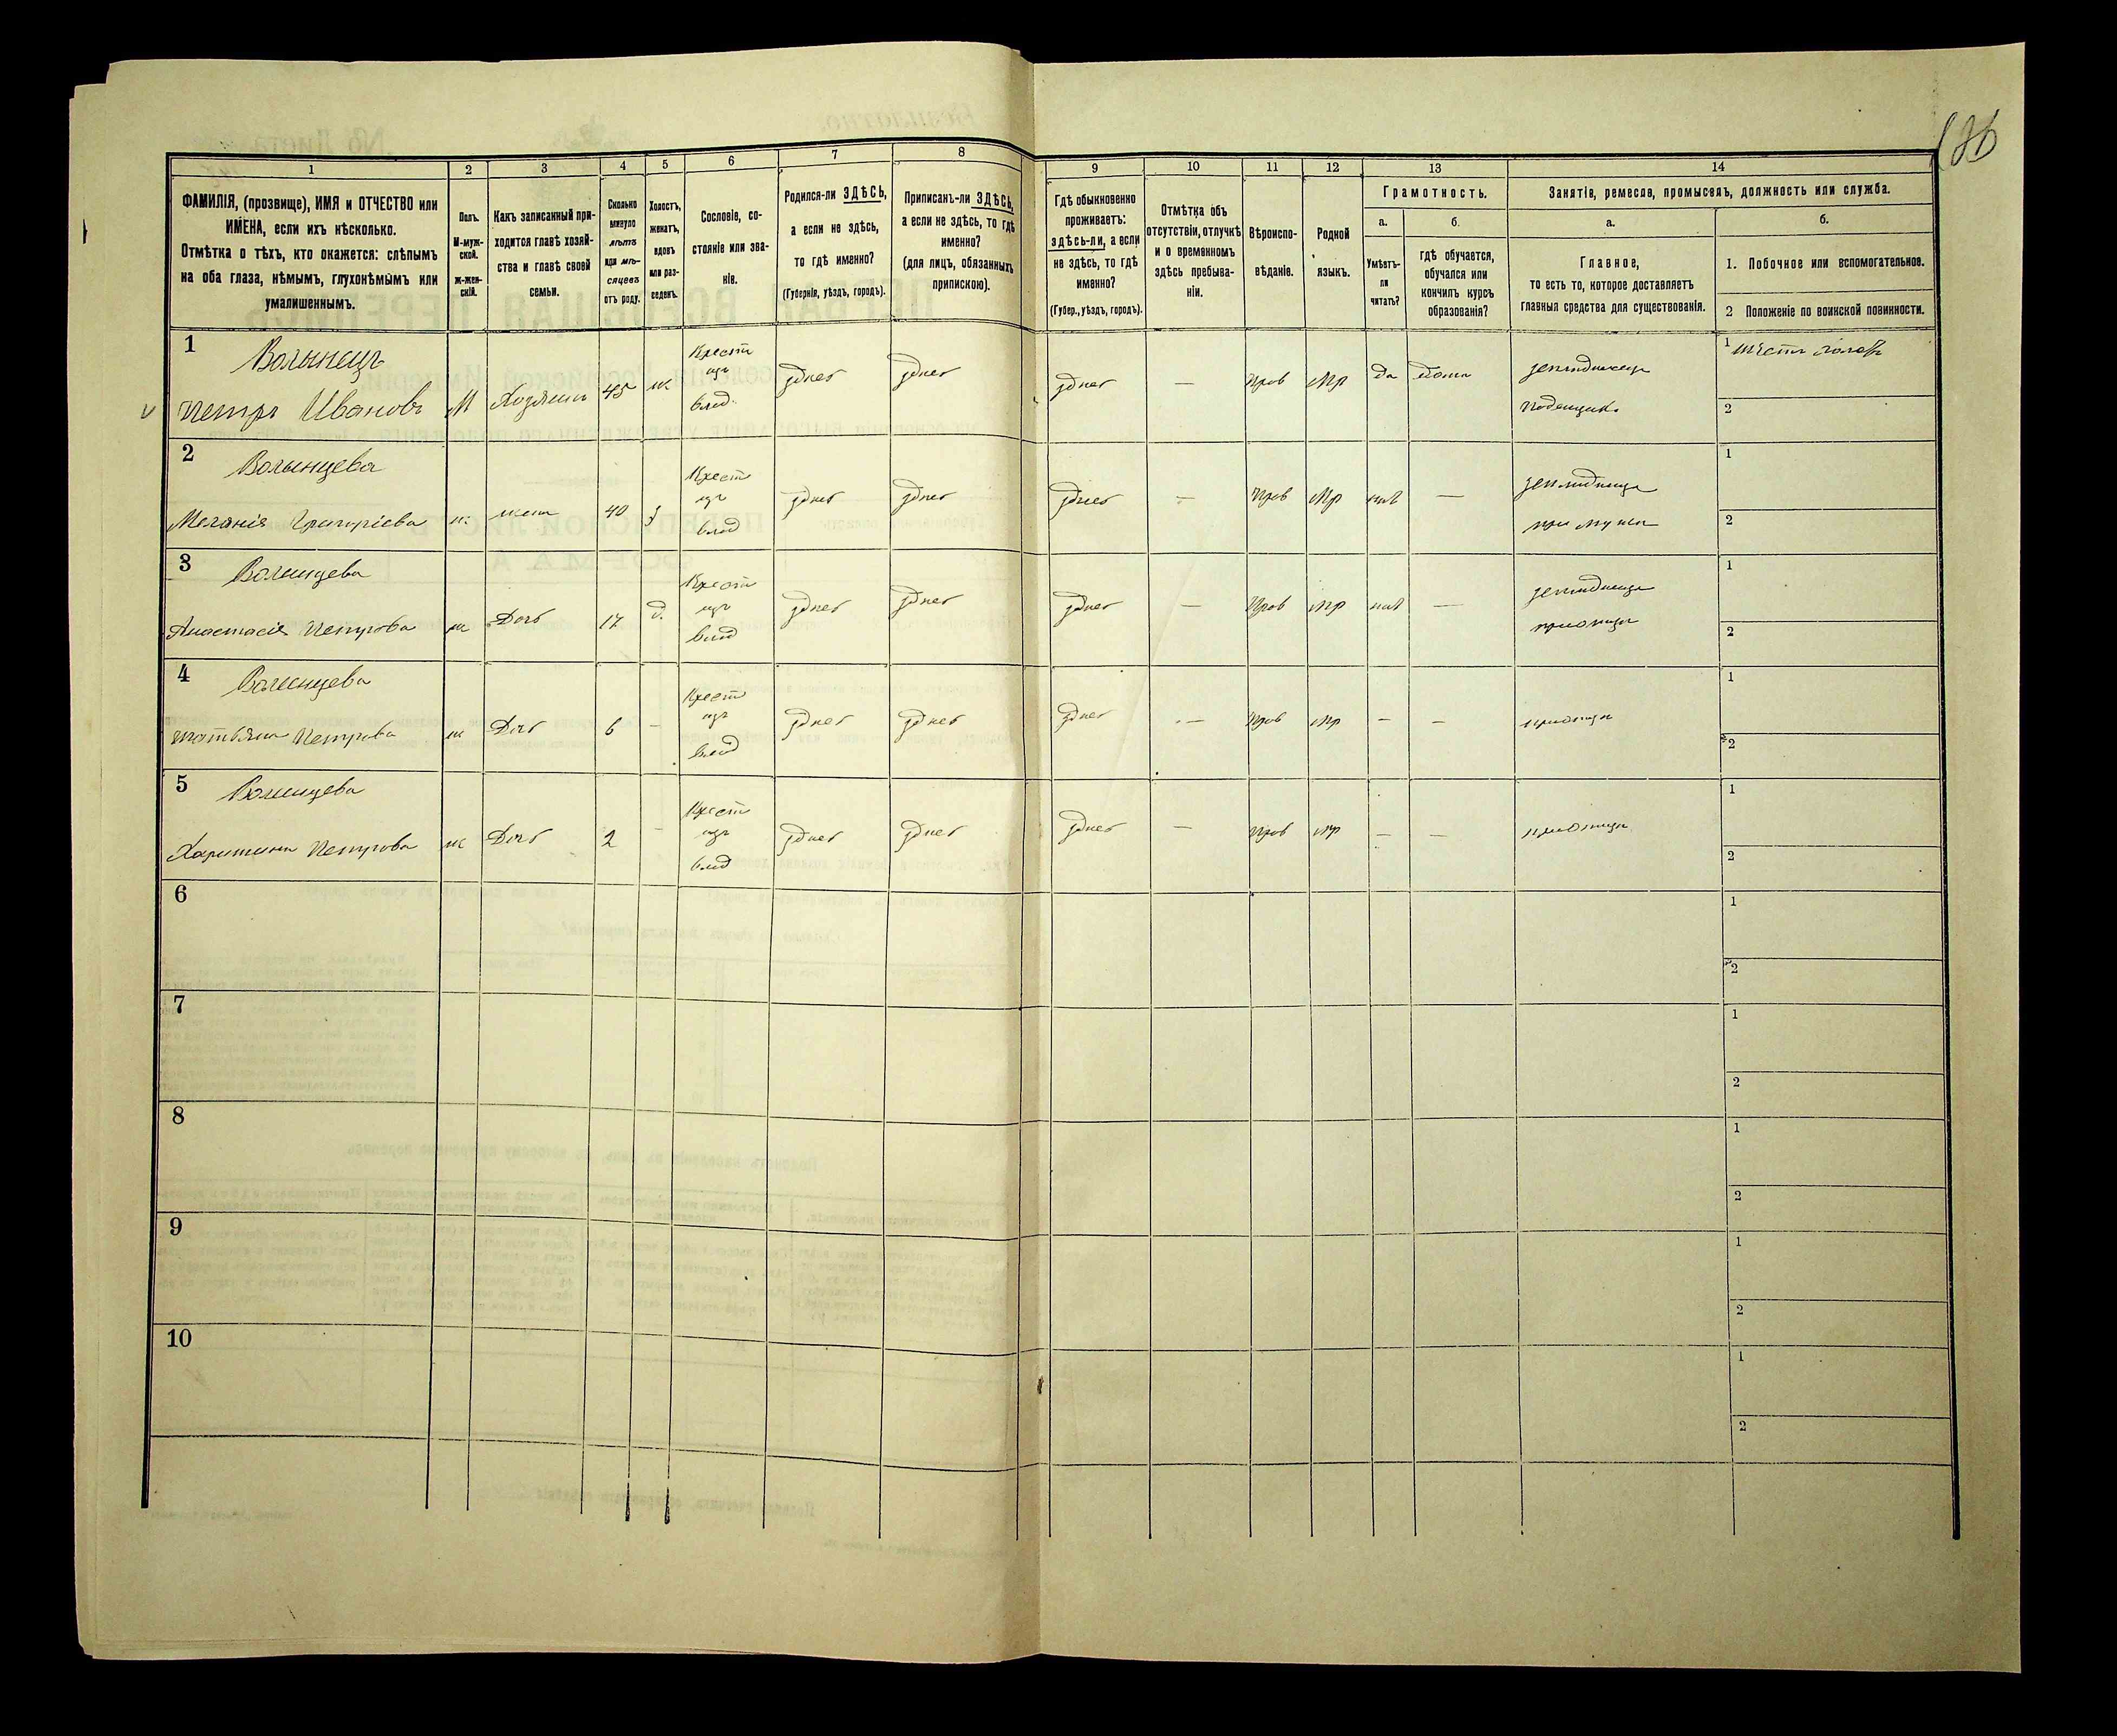 136
1 2 3 4 5 6 7 8 9 10 11 12 13 14
ФАМИЛІЯ, (прозвище), ИМЯ и ОТЧЕСТВО или
ИМЕНА, если ихъ нѣсколько.
Отмѣтка о тѣхъ, кто окажется: слѣпымъ
на оба глаза, нѣмымъ, глухонѣмымъ или
умалишеннымъ.
Полъ.
М-муж-
ской.
ж-жен-
скій.
Какъ записанный при-
ходится главѣ хозяй-
ства и главѣ своей
семьи.
Сколько
минуло
лѣтъ
или мѣ-
сяцевъ
отъ роду.
Холостъ,
женатъ,
вдовъ
или раз-
веденъ.
Сословіе, со-
стояніе или зва-
ніе.
Родился-ли ЗДѢСЬ,
а если не здѣсь,
то гдѣ именно?
(Губернія, уѣздъ, городъ).
Приписанъ-ли ЗДѢСЬ,
а если не здѣсь, то гдѣ
именно?
(для лицъ, обязанныхъ
припискою).
Гдѣ обыкновенно
проживаетъ:
здѣсь-ли, а если
не здѣсь, то гдѣ
именно?
(Губер., уѣздъ, городъ).
Отмѣтка объ
отсутствіи, отлучкѣ
и о временномъ
здѣсь пребыва-
ніи.
Вѣроиспо-
вѣданіе.
Родной
языкъ.
Грамотность.
а.
Умѣетъ-
ли
читать?
б.
гдѣ обучается,
обучался или
кончилъ курсъ
образованія?
Занятіе, ремесло, промыселъ, должность или служба.
а.
Главное,
то есть то, которое доставляетъ
главныя средства для существованія.
б.
1. Побочное или вспомогательное.
2 Положеніе по воинской повинности.
1 Волынецъ
Петръ Ивановъ М Хозяинъ 45 ж Крест изъ влад здѣсь здѣсь здѣсь — Прав Мр да дома земледелецъ
1
2
2 Волынцева
Меланія Григоріева ж жена 40 з Крест изъ влад здѣсь здѣсь здѣсь — Прав Мр нѣт — земледелица
при мужѣ
1
2
3 Волынцева
Анастасія Петрова ж Дочь 17 д. Крест изъ влад здѣсь здѣсь здѣсь — Прав Мр нѣт — земледелица
при отцѣ
1
2
4 Волынцева
Татьяна Петрова ж Дочь 6 — Крест изъ влад здѣсь здѣсь здѣсь — Прав Мр — — при отцѣ
1
2
5 Волынцева
Харитина Петрова ж Дочь 2 — Крест изъ влад здѣсь здѣсь здѣсь — Прав Мр — — при отцѣ
1
2
6
1
2
7
1
2
8
1
2
9
1
2
10
1
2